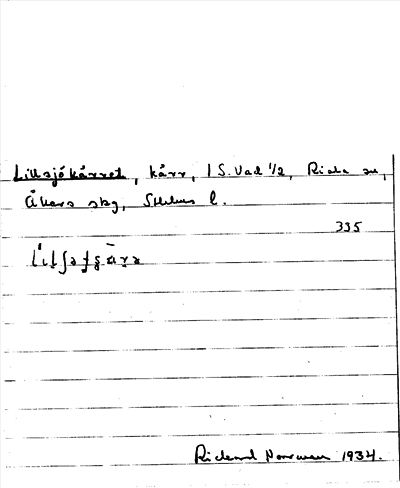 Lillsjökärret, kärr, 1 S. Vad 1/2, Riala sn,
Åkers skg, Sthlms l.
335
Rickard Norrman 1934.